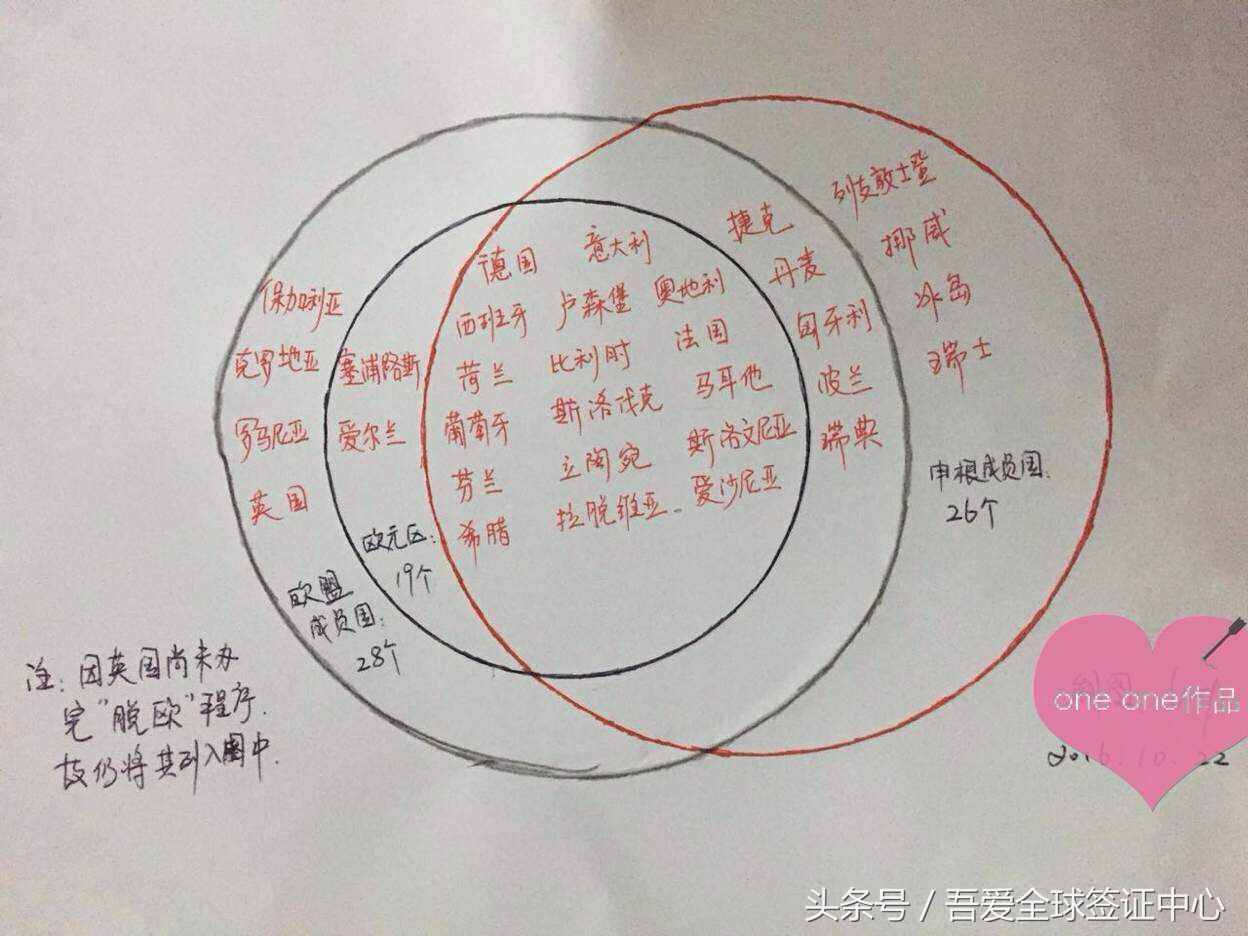 列支敦士登
捷克
挪威
德国 意大利
丹麦
保加利亚
西班牙 卢森堡 奥地利
冰岛
匈牙利
克罗地亚 塞浦路斯
荷兰 比利时 法国
瑞士
波兰
葡萄牙 斯洛伐克 马耳他
罗马尼亚 爱尔兰
瑞典
芬兰 立陶宛 斯洛文尼亚
英国
希腊 拉脱维亚 爱沙尼亚
申根成员国:
26个
欧元区:
19个
欧盟
成员国:
28个
注:因英国尚未办
完“脱欧”程序.
故仍将其列入图中.
one one作品
2016.10.22
头条号/吾爱全球签证中心